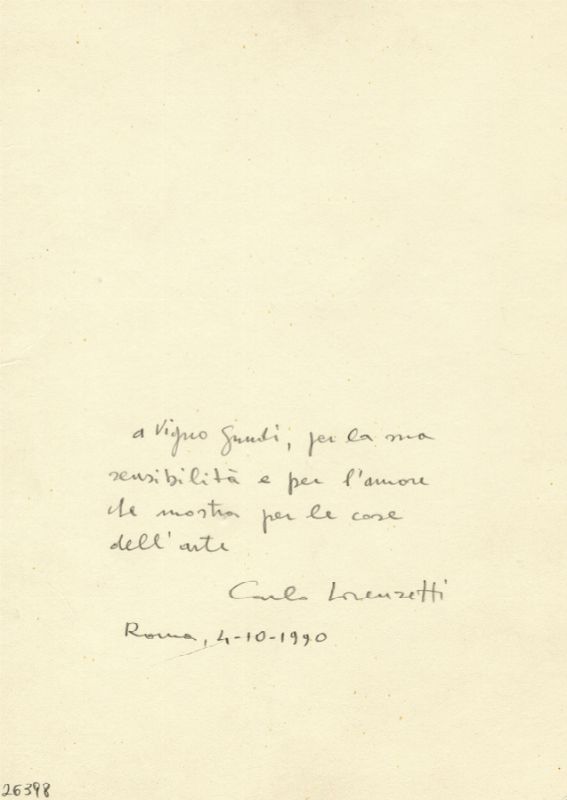 a Vigno Gundi, per la sua
sensibilità e per l'amore
che mostra per le cose
dell'arte
Carlo Lorenzetti
Roma, 4-10-1990
26398